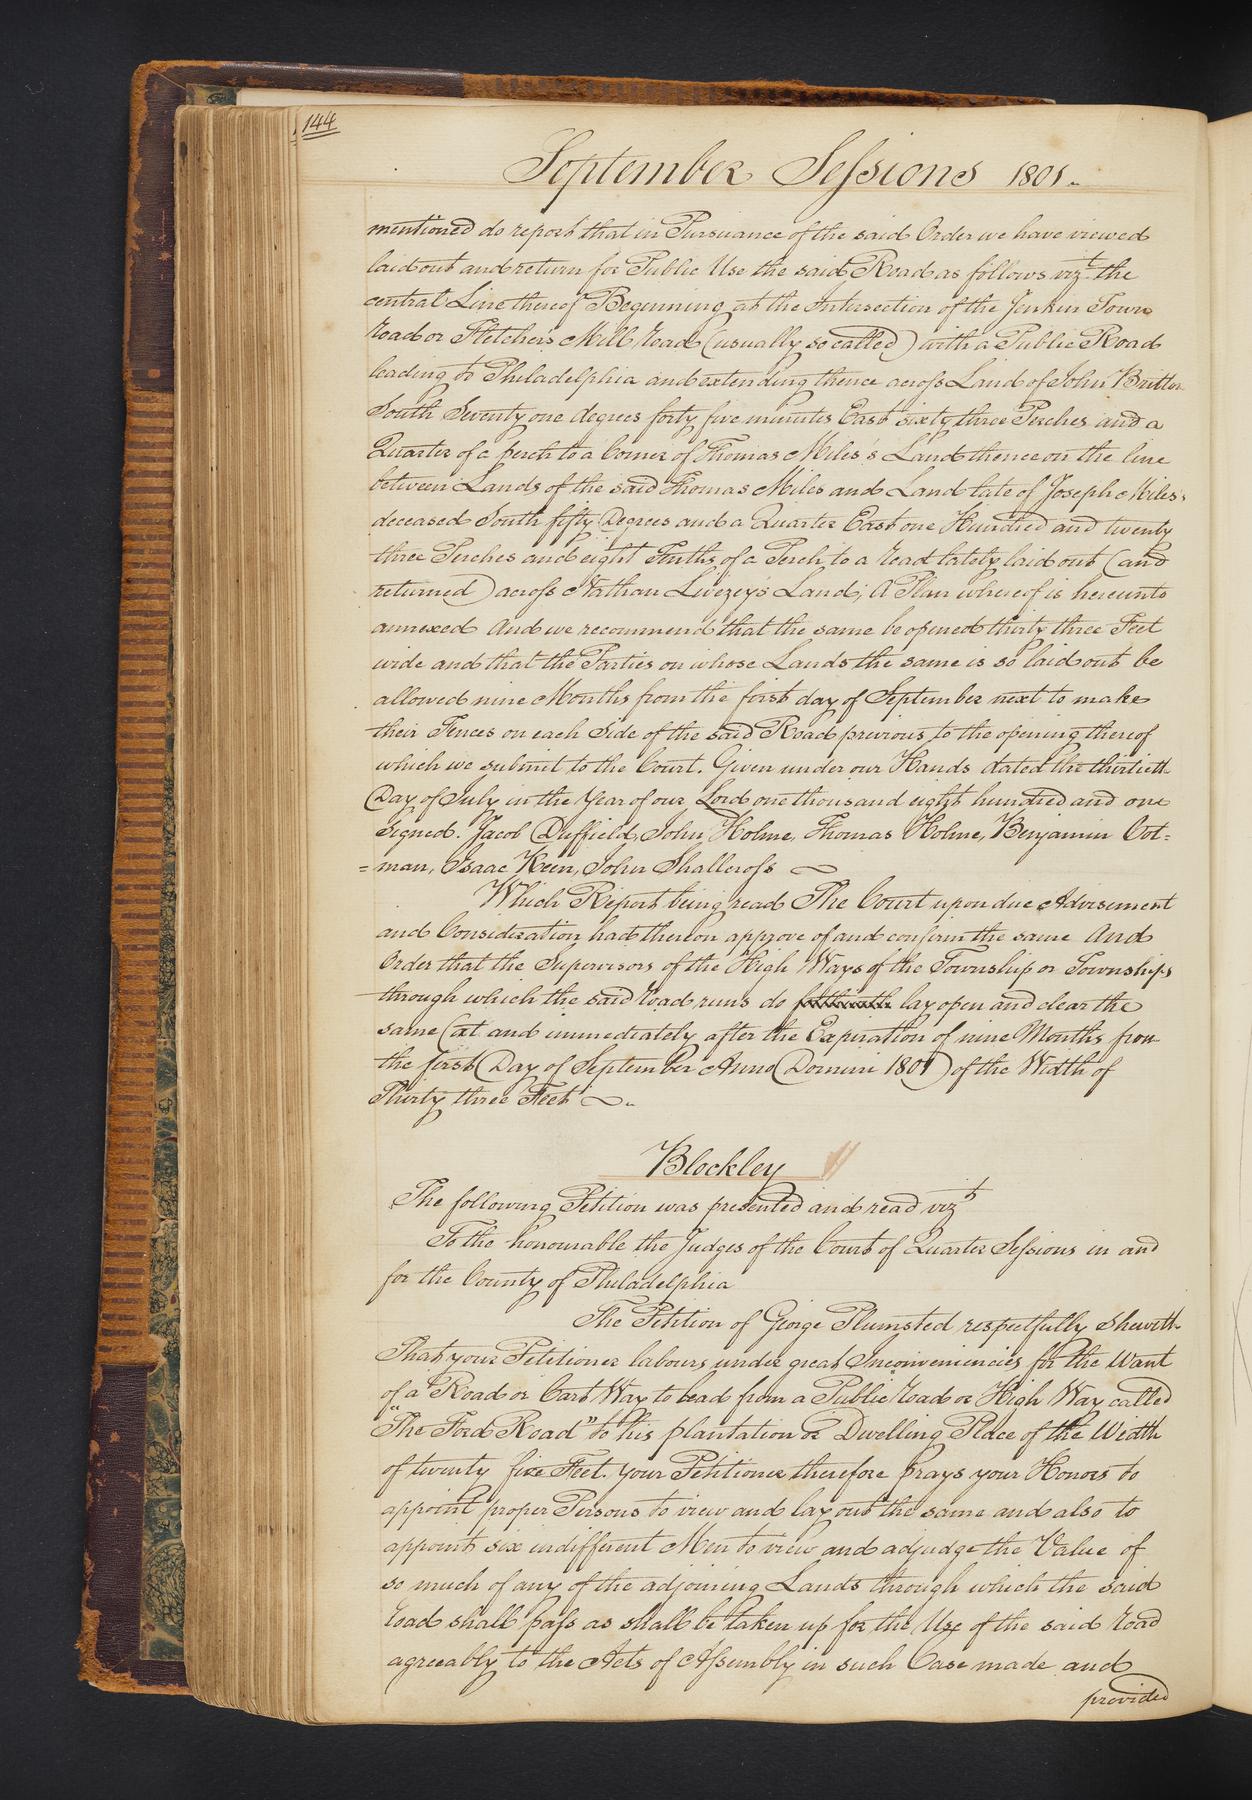 144
September Sessions 1801.
mentioned do report that in Pursuance of the said Order we have viewed
laid out and return for Public Use the said Road as follows vizt. the
central Line thereof Beginning at the Intersection of the Jenkin Town
road or Fletchers Mill road (usually so called) with a Public Road
leading to Philadelphia and extending thence across Land of John Britton
South Seventy one degrees forty five minutes East sixty three Perches and a
Quarter of a perch to a Corner of Thomas Miles's Land thence on the line
between Lands of the said Thomas Miles and Land late of Joseph Miles's
deceased South fifty Degrees and a Quarter East one Hundred and twenty
three Perches and eight Tenths of a Perch to a road lately laid out (and
returned) across Nathan Livezey's Land; A Plan whereof is hereunto
annexed And we recommend that the same be opened thirty three Feet
wide and that the Parties on whose Lands the same is so laid out be
allowed nine Months from the first day of September next to make
their Fences on each Side of the said Road previous to the opening thereof
which we submit to the Court. Given under our Hands dated the thirtieth
Day of July in the Year of our Lord one thousand eight hundred and one
Signed. Jacob Duffield, John Holme, Thomas Holme, Benjamin Cot=
=man, Isaac Keen, John Shallcross
Which Report being read The Court upon due Advisement
and Consideration had thereon approve of and confirm the same And
Order that the Supervisors of the High Ways of the Township or Townships
through which the said road runs do lay open and clear the
same (at and immediately after the Expiration of nine Months from
the first Day of September Anno Domini 1801) of the Width of
Thirty three Feet
Blockley
The following Petition was presented and read vizt
To the honourable the Judges of the Court of Quarter Sessions in and
for the County of Philadelphia
The Petition of George Plumsted respectfully sheweth
That your Petitioner labours under great Inconveniencies for the Want
of a Road or Cart Way to lead from a Public road or High Way called
"The Ford Road" to his plantation or Dwelling Place of the Width
of twenty five Feet. Your Petitioner therefore prays your Honors to
appoint proper Persons to view and lay out the same and also to
appoint six indifferent Men to view and adjudge the Value of
so much of any of the adjoining Lands through which the said
road shall pass as shall be taken up for the Use of the said road
agreeably to the Acts of Assembly in such Case made and
provided